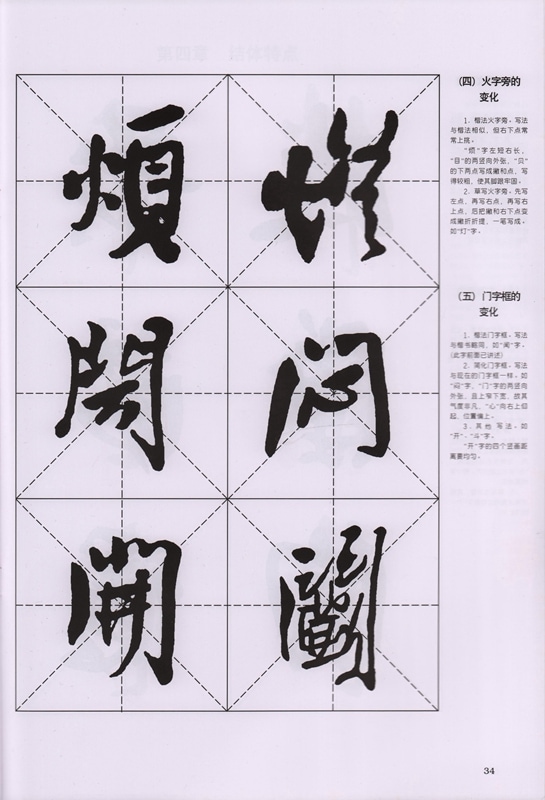 煩 燈
闷
開
（四）火字旁的
变化
1．楷法火字旁。写法
与楷法相似，但右下点常
常上挑。
“烦”字左短右长，
“目”的两竖向外张，“贝”
的下两点写成撇和点，写
得较粗，使其脚跟牢固。
2．草写火字旁。先写
左点，再写右点，再写右
上点，后把撇和右下点变
成撇折折提，一笔写成。
如“灯”字。
（五）门字框的
变化
1．楷法门字框。写法
与楷书雷同，如“ ”字。
（此字前面已讲述）
2．简化门字框。写法
与现在的门字框一样。如
“闷”字，“门”字的两竖向
外张，且上窄下宽，故其
气度非凡，“心”向右上仰
起，位置偏上。
3．其他写法。如
“开”、“斗”字。
“开”字的四个竖画距
离要均匀。
34